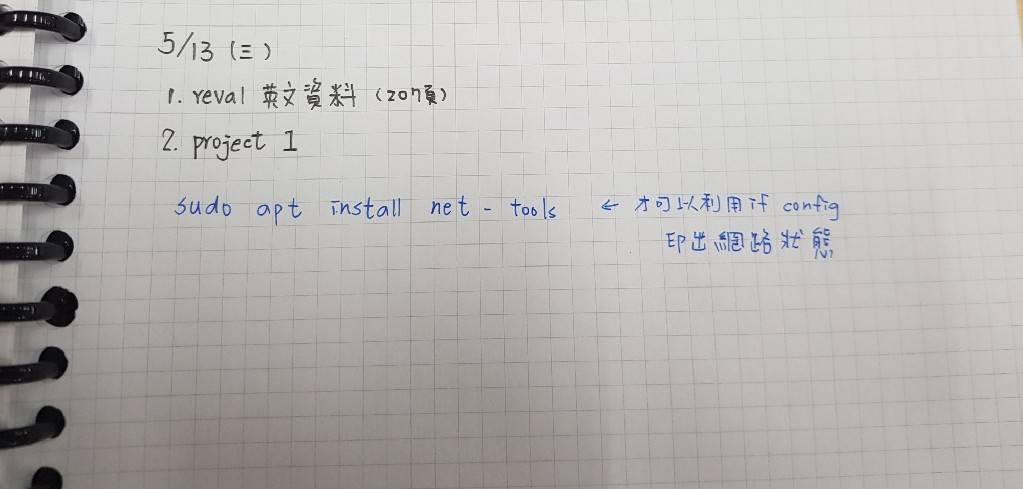 5/13 (三)
1. reval 英文資料 (207頁)
2. project 1
sudo apt install net-tools ← 才可以利用if config
印出網路狀態